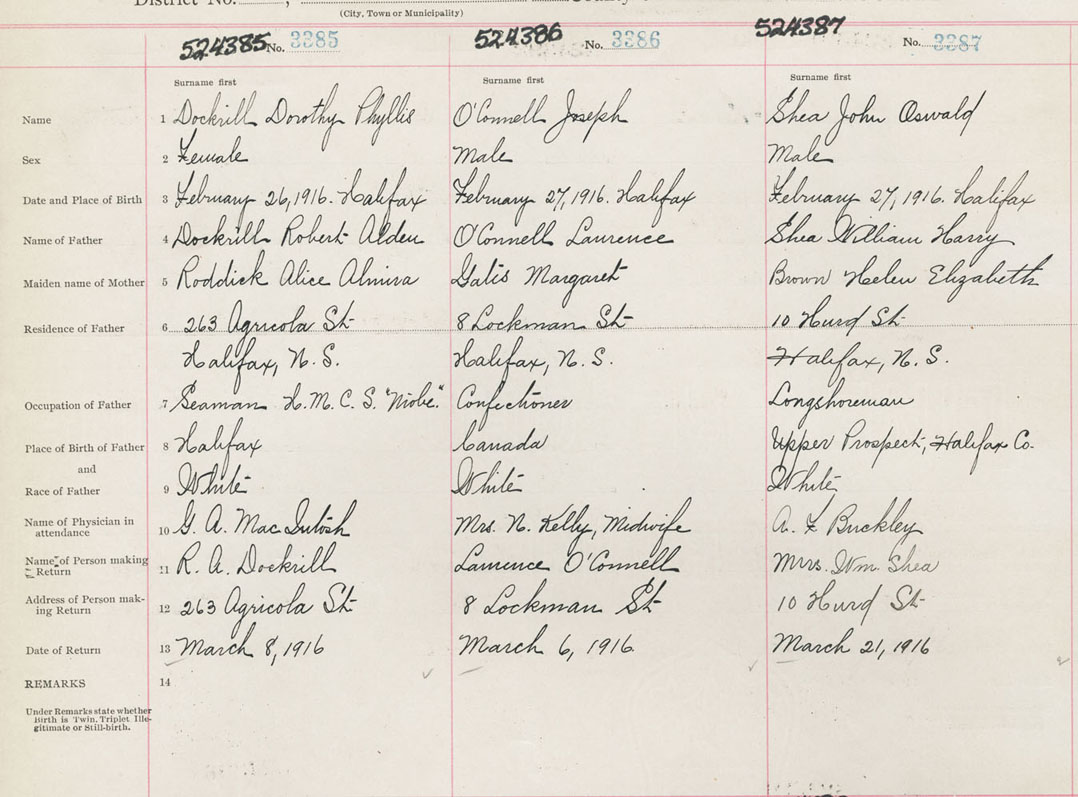 District No. , County
(City, Town or Municipality)
524385 No. 3385 524386 No. 3386 524387 No. 3387
Surname first Surname first Surname first
Name 1 Dockrill Dorothy Phyllis O'Connell Joseph Shea John Oswald
Sex 2 Female Male Male
Date and Place of Birth 3 February 26, 1916. Halifax February 27, 1916. Halifax February 27, 1916. Halifax
Name of Father 4 Dockrill Robert Alden O'Connell Laurence Shea William Harry
Maiden name of Mother 5 Roddick Alice Almira Galis Margaret Brown Helen Elizabeth
Residence of Father 6 263 Agricola St 8 Lockman St 10 Hurd St
Halifax, N. S. Halifax, N. S. Halifax, N. S.
Occupation of Father 7 Seaman H. M. C. S. "Niobe." Confectioner Longshoreman
Place of Birth of Father 8 Halifax Canada Upper Prospect, Halifax Co.
and
Race of Father 9 White White White
Name of Physician in attendance 10 G. A. MacIntosh Mrs. N. Kelly, Midwife A. F Buckley
Name of Person making Return 11 R. A. Dockrill Laurence O'Connell Mrs. Wm. Shea
Address of Person making Return 12 263 Agricola St 8 Lockman St 10 Hurd St
Date of Return 13 March 8, 1916 March 6, 1916. March 21, 1916
REMARKS 14
Under Remarks state whether
Birth is Twin, Triplet Ille-
gitimate or Still-birth.